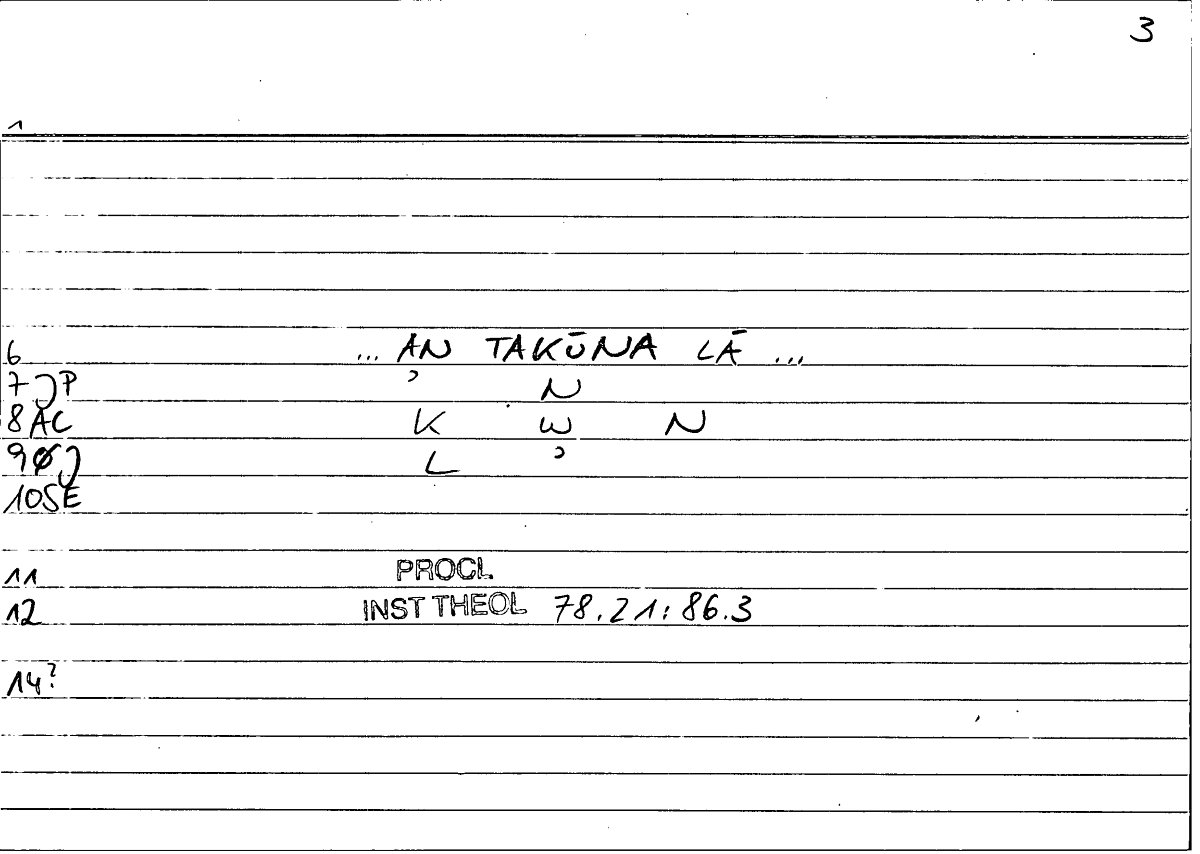 3
1
6 ... ȦN TAKŪNA LĀ ...
7 JP ʾ N
8 AC K W N
9 ØJ L ʾ
10 SE
11 PROCL.
12 INST THEOL 78.21:86.3
14?